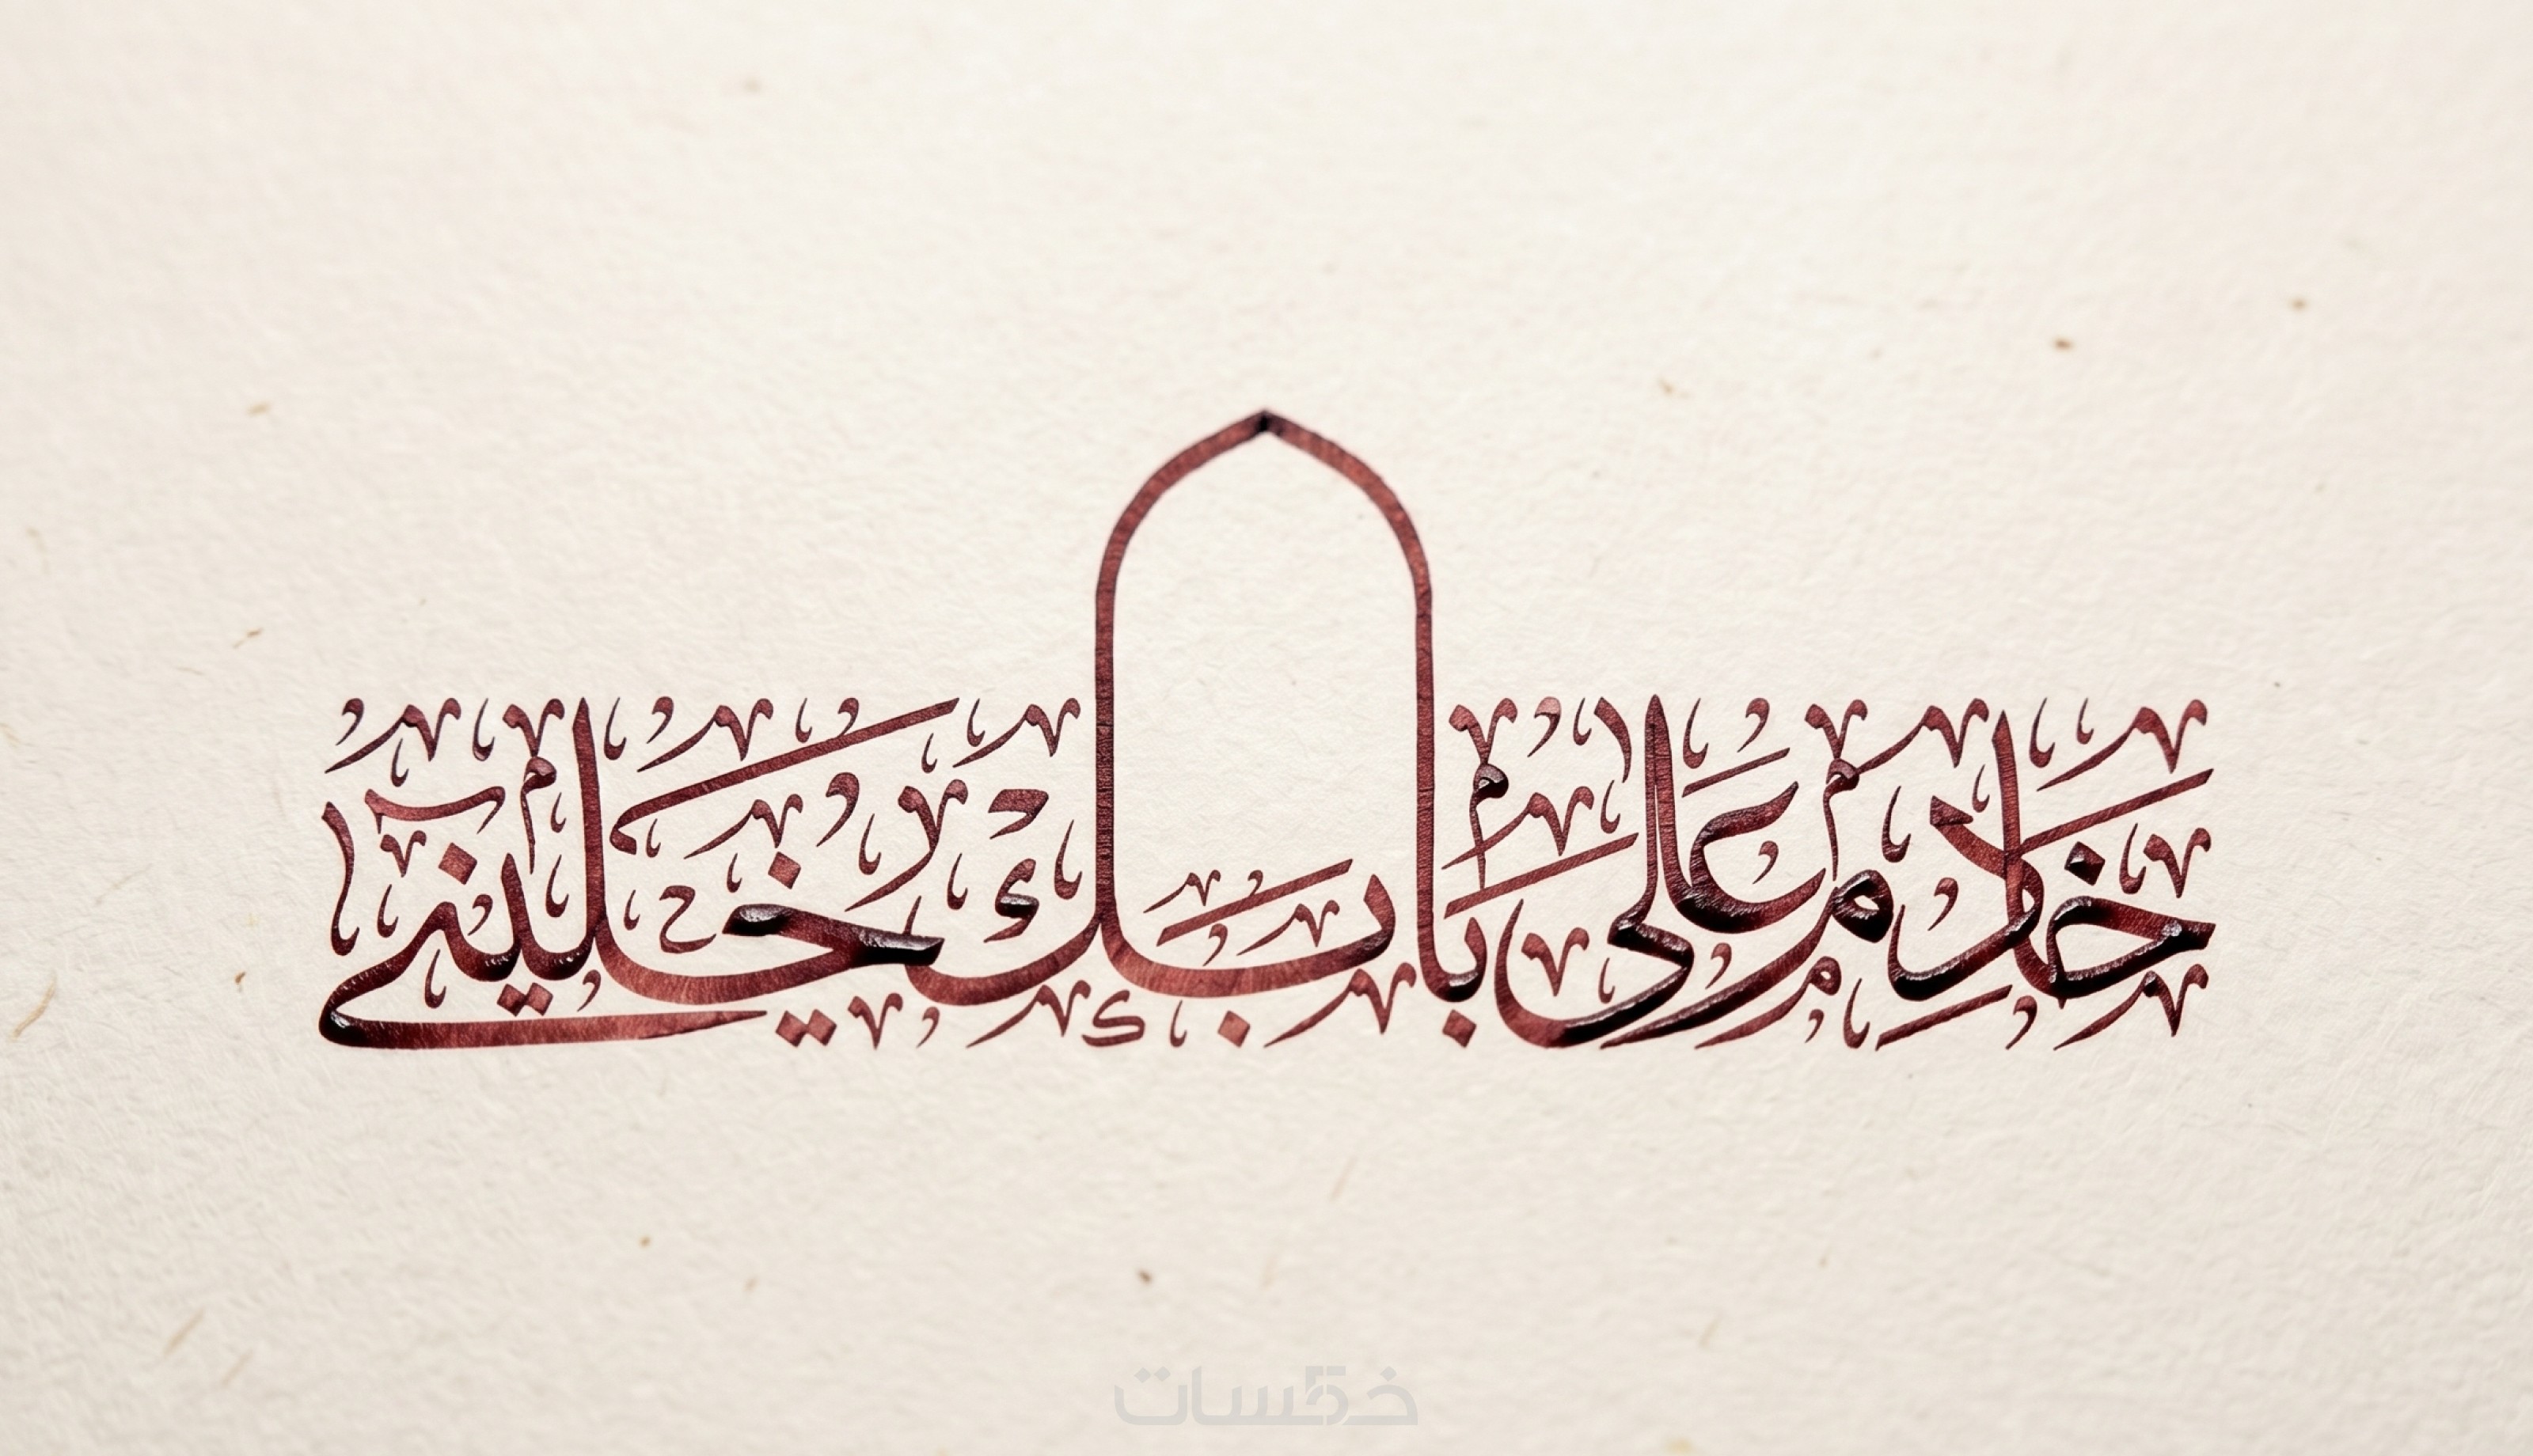 خادم على بابك خليني
خمسات